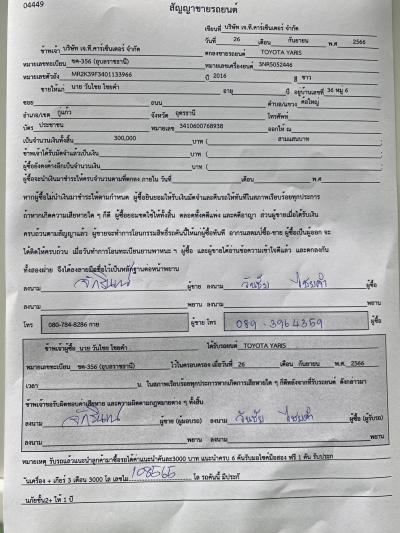 04449
สัญญาขายรถยนต์
เขียนที่ บริษัท เจ.ที.คาร์เซ็นเตอร์ จำกัด
วันที่ 26 เดือน กันยายน พ.ศ 2566
ข้าพเจ้า บริษัท เจ.ที.คาร์เซ็นเตอร์ จำกัด ตกลงขายรถยนต์ TOYOTA YARIS
หมายเลขทะเบียน ขต-356 (อุบลราชธานี) หมายเลขเครื่องยนต์ 3NR5052446
หมายเลขตัวถัง MR2K39F3401133966 ปี 2016 สี ขาว
ขายให้แก่ นาย วันไชย ไชยคำ อายุ ปี อยู่บ้านเลขที่ 36 หมู่ 6
ซอย ถนน ตำบล/แขวง ค้อใหญ่
อำเภอ/เขต กู่แก้ว จังหวัด อุดรธานี โทรศัพท์
บัตร ประชาชน หมายเลข 3410600768938 ออกให้ ณ
เป็นจำนวนเงินทั้งสิ้น 300,000 บาท ( สามแสนบาท
ข้าพเจ้าได้รับมัดจำแล้วเป็นเงิน บาท (
ผู้ซื้อยังคงค้างอีกเป็นจำนวนเงิน บาท (
ผู้ซื้อจะนำเงินมาชำระให้ครบจำนวนตามที่ตกลง ภายใน วันที่ เดือน พ.ศ
หากผู้ซื้อไม่นำเงินมาชำระให้ตามกำหนด ผู้ซื้อยินยอมให้ริบเงินมัดจำและคืนรถให้ทันทีในสภาพเรียบร้อยทุกประการ
ถ้าหากเกิดความเสียหายใด ๆ ก็ดี ผู้ซื้อยอมชดใช้ให้ทั้งสิ้น ตลอดทั้งคดีแพ่ง และคดีอาญา ส่วนผู้ขายเมื่อได้รับเงิน
ครบถ้วนตามสัญญาแล้ว ผู้ขายจะทำการโอนกรรมสิทธิ์รถคันนี้ให้แก่ผู้ซื้อทันที อากรแสตมป์ซื้อ-ขาย ผู้ซื้อเป็นผู้ออก จะ
ได้คิดให้ครบถ้วน เมื่อวันทำการโอนทะเบียนยานพาหนะ ฯ ผู้ซื้อ และผู้ขายได้อ่านข้อความเข้าใจดีแล้ว และตกลงกัน
ทั้งสองฝ่าย จึงได้ลงลายมือชื่อไว้เป็นหลักฐานต่อหน้าพยาน
ลงนาม จักรินทร์ ผู้ขาย ลงนาม วันชัย ไชยคำ ผู้ซื้อ
ลงนาม พยาน ลงนาม พยาน
โทร 080-784-8286 กาย ผู้ขาย โทร 089-3964359 ผู้ซื้อ
ข้าพเจ้าผู้ซื้อ นาย วันไชย ไชยคำ ได้รับรถยนต์ TOYOTA YARIS
หมายเลขทะเบียน ขต-356 (อุบลราชธานี) ไว้ในครอบครอง เมื่อวันที่ 26 เดือน กันยายน พ.ศ. 2566
เวลา น. ในสภาพเรียบร้อยทุกประการหากเกิดการเสียหายใด ๆ ก็ดีหลังจากที่รับรถยนต์ ดังกล่าวมา
ข้าพเจ้าขอรับผิดชอบค่าเสียหาย และความผิดตามกฎหมายต่าง ๆ ทั้งสิ้น
ลงนาม จักรินทร์ ผู้ขาย (ผู้มอบรถ) ลงนาม วันชัย ไชยคำ ผู้ซื้อ (ผู้รับรถ)
ลงนาม พยาน ลงนาม พยาน
หมายเหตุ รับรถแล้วแนะนำลูกค้ามาซื้อรถได้ค่าแนะนำคันละ3000 บาท แนะนำครบ 6 คันรับมอไซค์มือสอง ฟรี 1 คัน รับประกั
*นเครื่อง + เกียร์ 3 เดือน 3000 โล เลขไม 108565 โล รถคันนี้ มีประกั
นภัยชั้น2+ ให้ 1 ปี